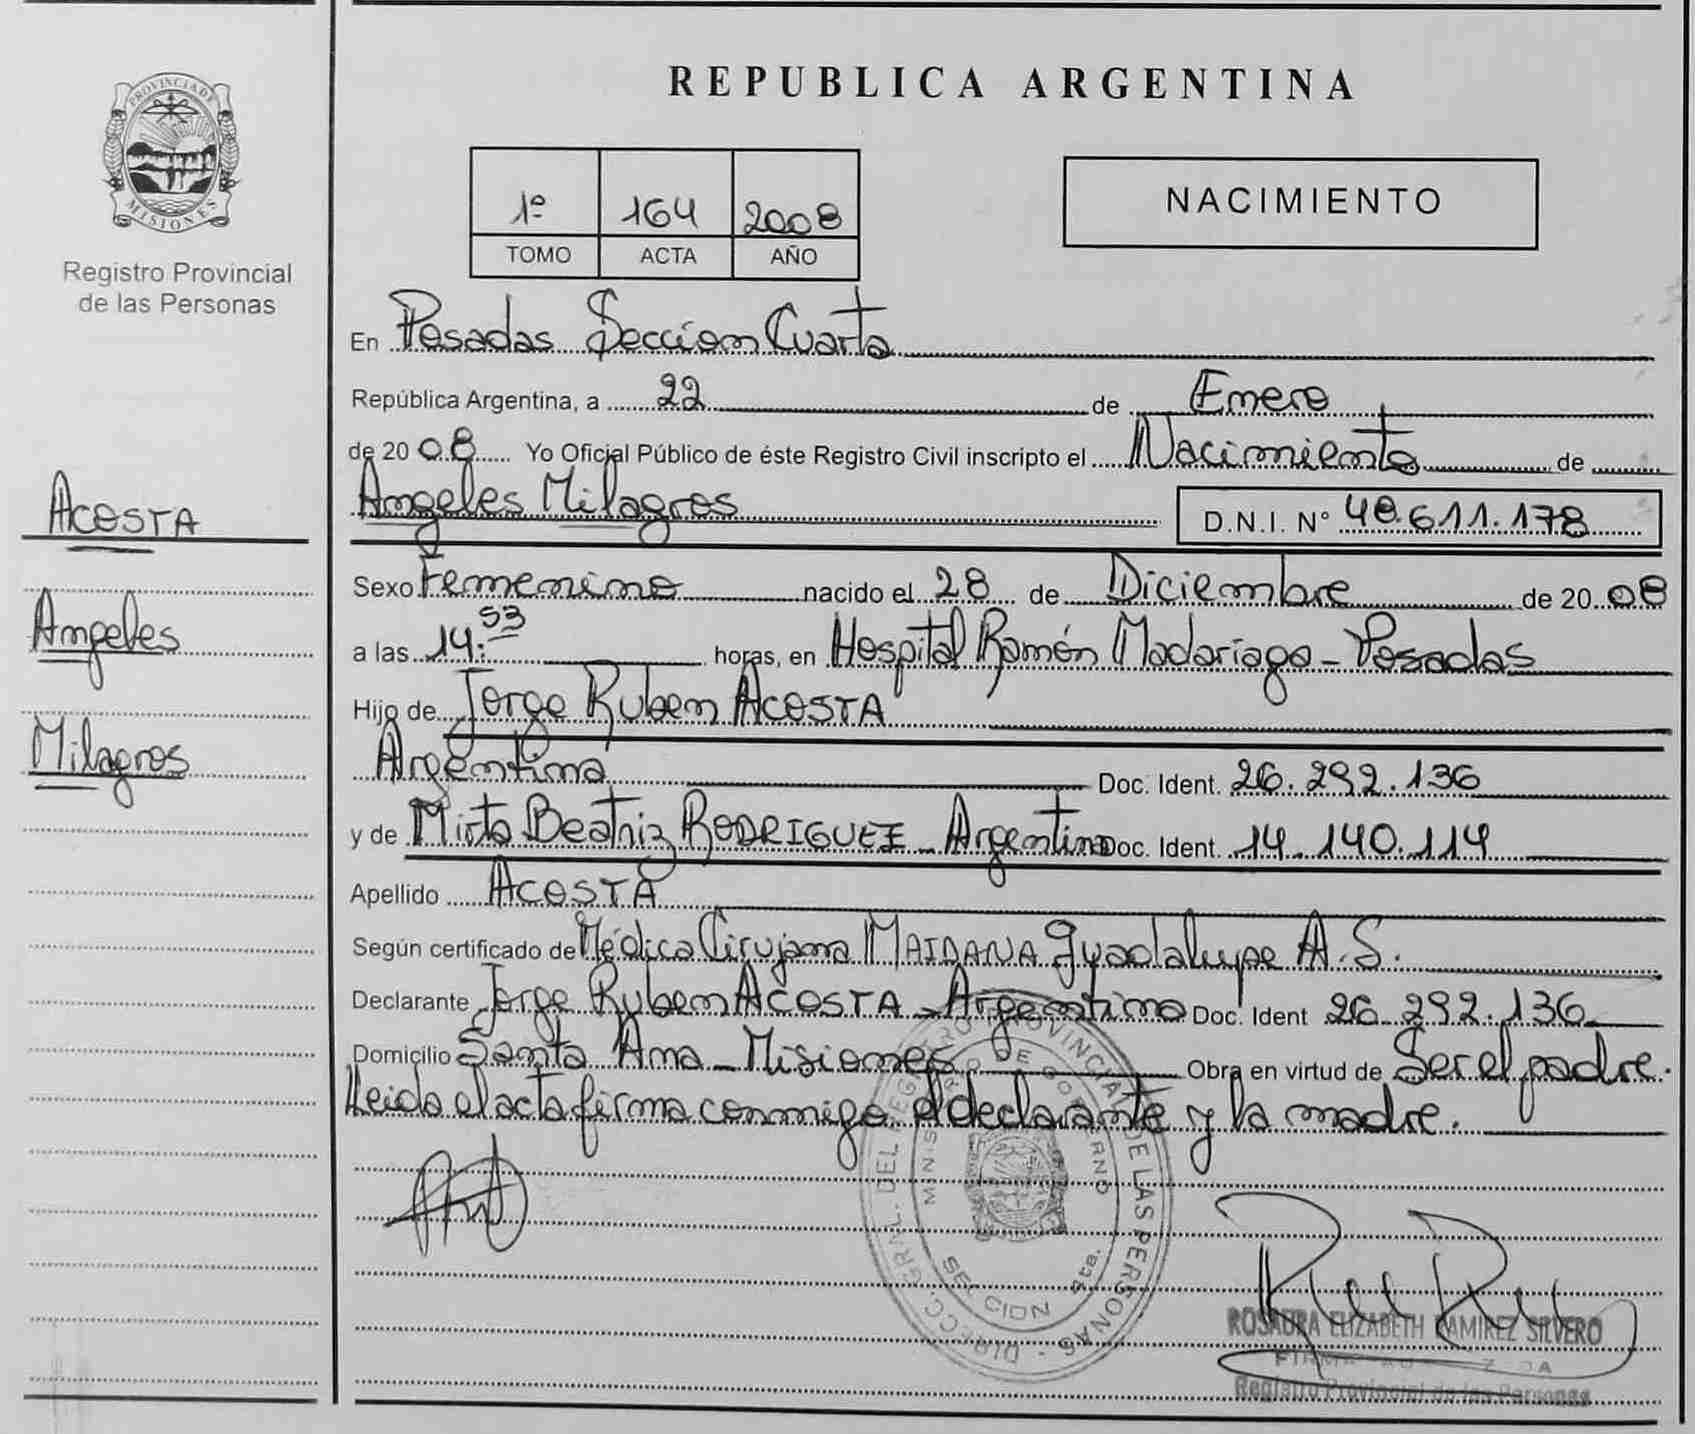 PROVINCIA DE
MISIONES
Registro Provincial
de las Personas
ACOSTA
Angeles
Milagros
REPUBLICA ARGENTINA
1º 164 2008
TOMO ACTA AÑO
NACIMIENTO
En Posadas Seccion Cuarta
República Argentina, a 22 de Enero
de 2008 Yo Oficial Público de éste Registro Civil inscripto el Nacimiento de
Angeles Milagros D.N.I. Nº 48.611.178
Sexo Femenino nacido el 28 de Diciembre de 2008
a las 14:53 horas, en Hospital Ramón Madariaga - Posadas
Hijo de Jorge Ruben ACOSTA
Argentina Doc. Ident. 26.292.136
y de Mirta Beatriz RODRIGUEZ - Argentina Doc. Ident. 14.140.114
Apellido ACOSTA
Según certificado de Médica Cirujana MAIDANA Guadalupe A.S.
Declarante Jorge Ruben ACOSTA - Argentino Doc. Ident 26.292.136
Domicilio Santa Ana - Misiones Obra en virtud de Ser el padre.
Leida el acta firma conmigo el declarante y la madre.
DIRECC. GRAL. DEL REGISTRO PROVINCIAL DE LAS PERSONAS
MINISTERIO DE GOBIERNO
SECCION 4ta.
ROSAURA ELIZABETH RAMIREZ SILVERO
Registro Provincial de las Personas